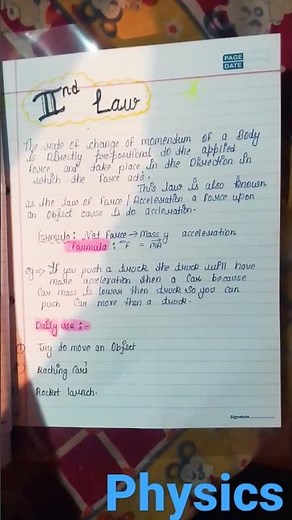 PAGE
DATE
IInd Law
The rate of change of momentum of a Body
is Directly propostional to the applied
force and take place in the Direction in
which the force acts.
This law is also known
as the law of force / Acceleration a force upon
an Object cause is do acceleration.
Formula: Net force → Mass y acceleration
Formula: F = ma
eg ⇒ If you push a truck the truck will have
more acceleration then a car because
Car mass is lower then truck so you can
push Car more then a truck.
Daily use :-
Try do move an Object
Raching Car
Rocket launch.
Signature
Physics